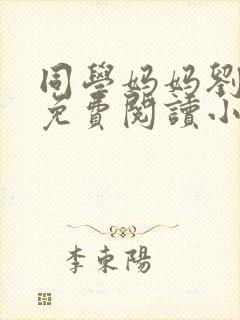 同學妈妈劉
免費閱讀小
李東陽